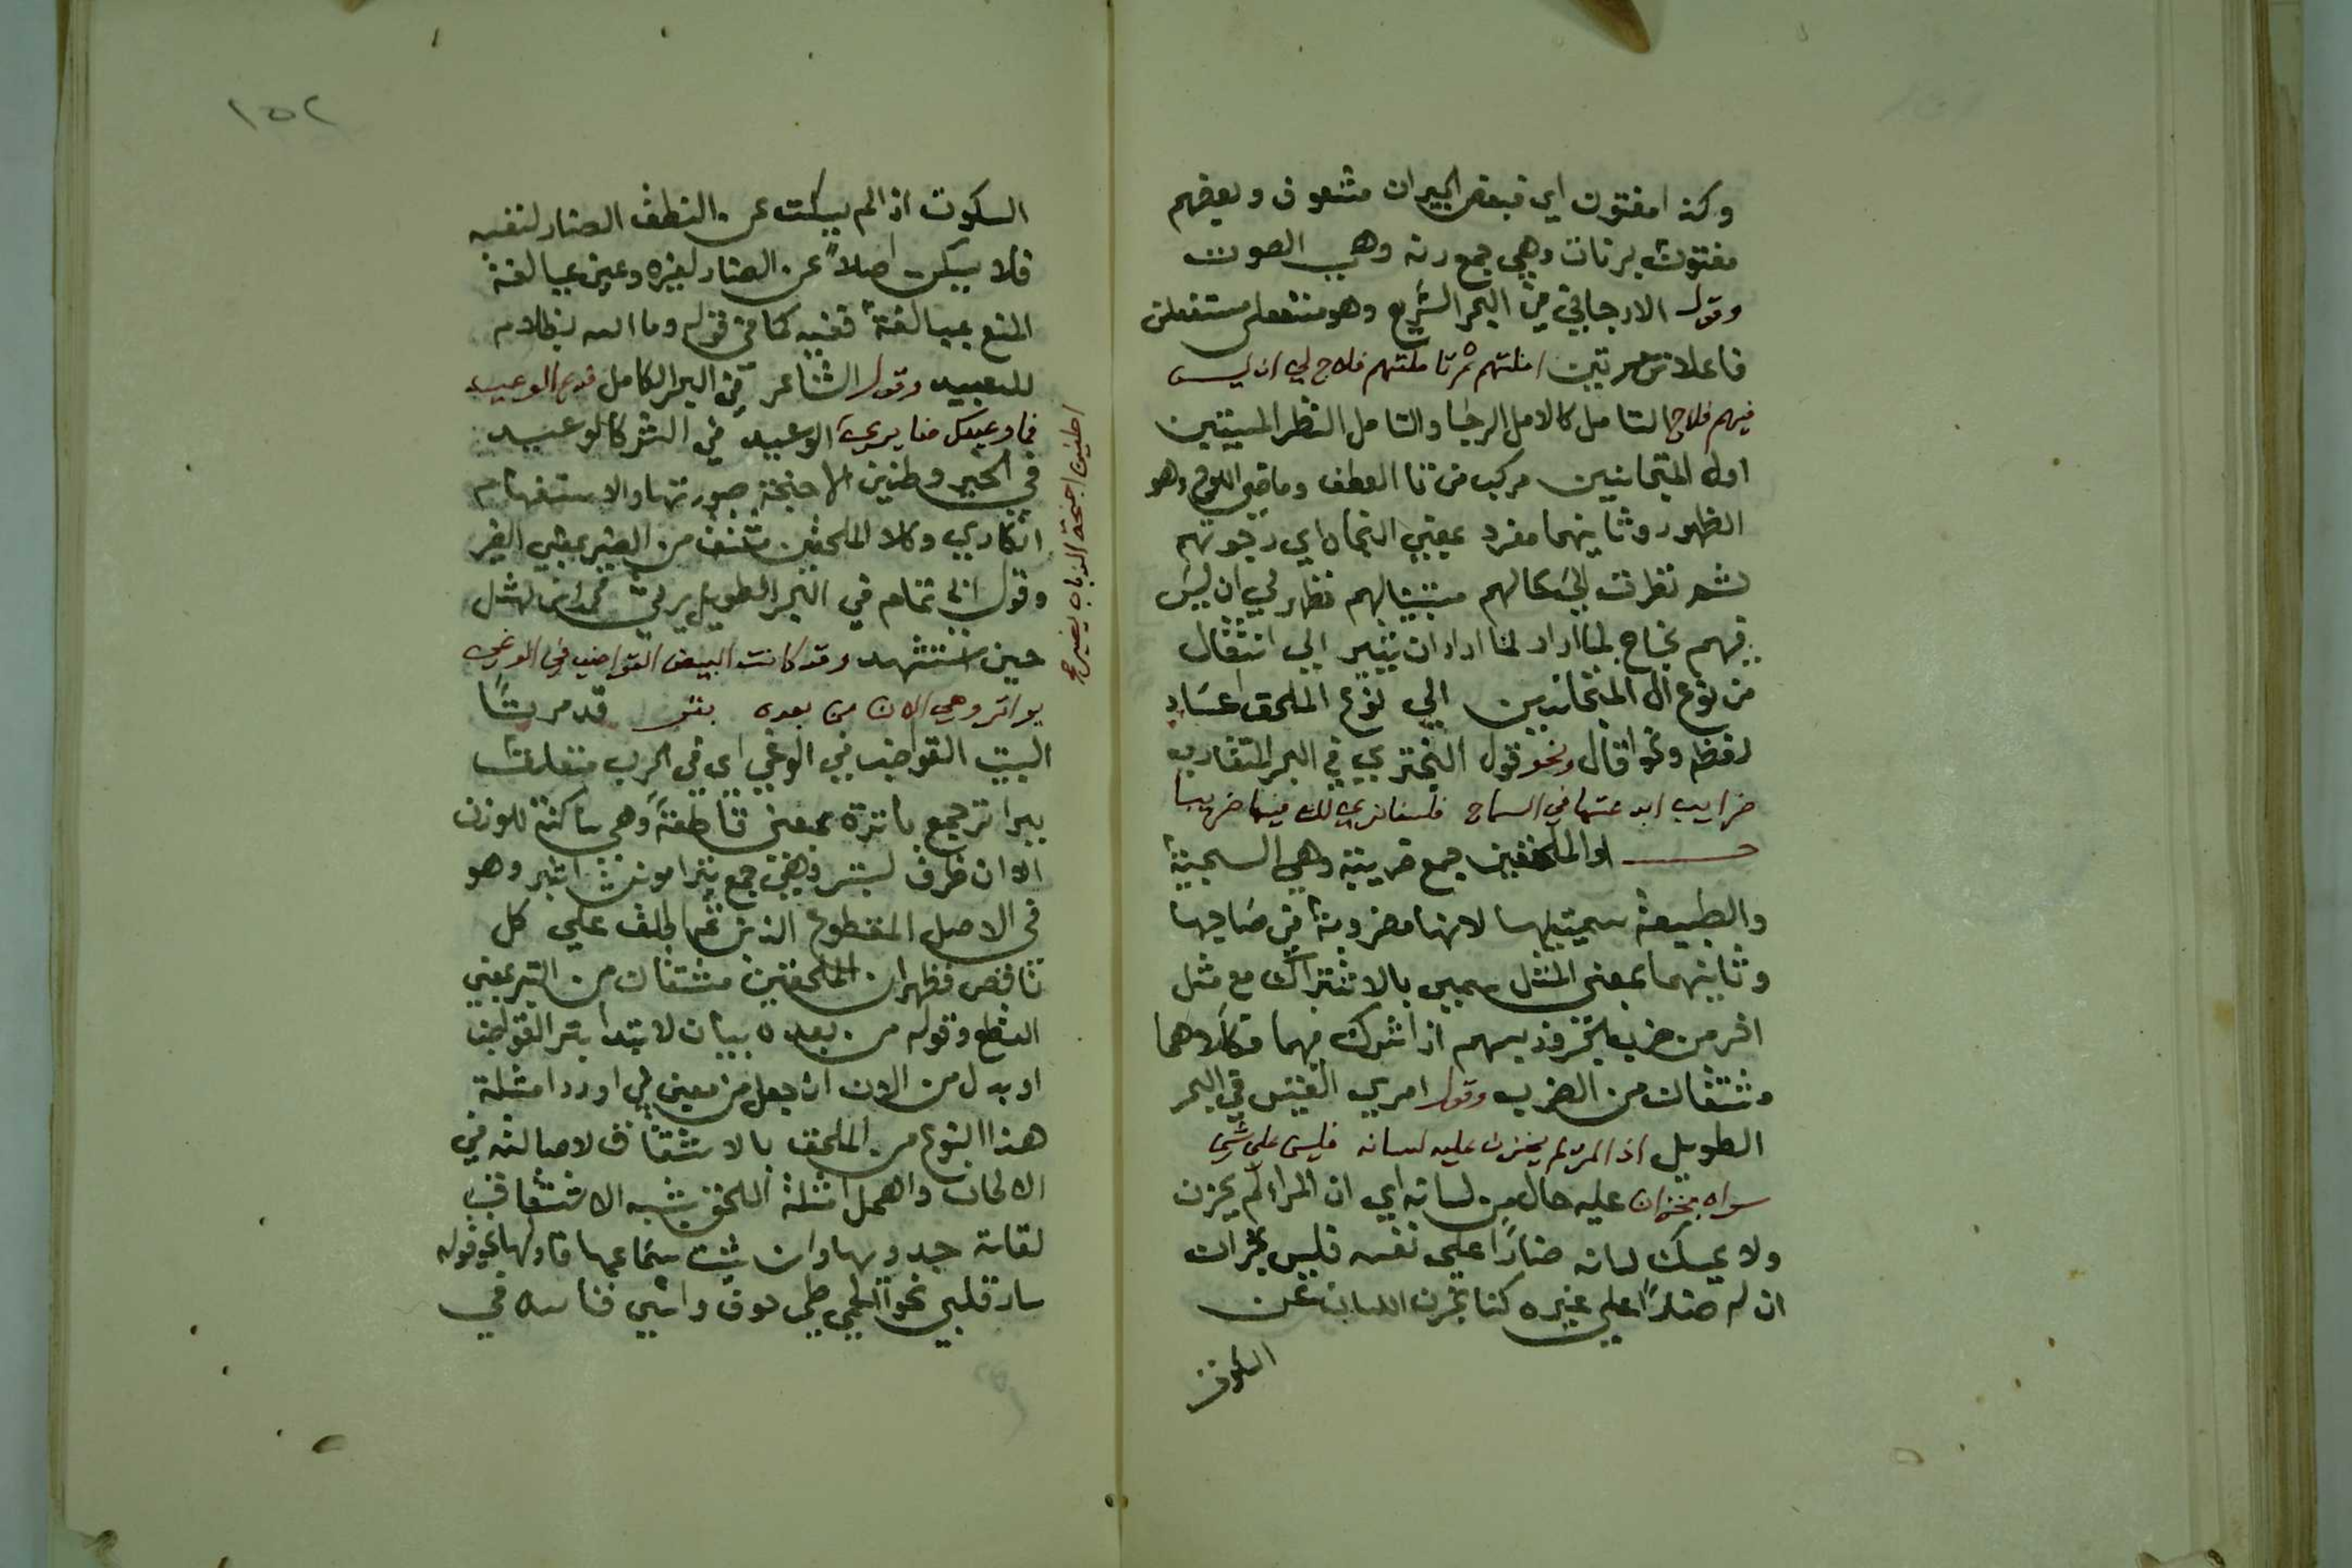 وكذا مفتون اي فبعض الجيران مشعوف وبعضهم
مفتون برنات وهي جمع رنه وهي الصوت
وقول الارجاني من البحر السريع وهو مستفعلن مستفعلن
فاعلان مرتين املتهم ثم تاملتهم فلاح لي ان ليس
فيهم فلاح التامل كالامل الرجا والتامل النظر
اول المتجانسين مركب من فا العطف وماضي اللوح وهو
الظهور وثانيهما مفرد بمعني النجاه اي رجوتهم
ثم نظرت الي حالهم فظهر لي ان ليس
فيهم نجاح لما اراد ان يشير الي انتقال
من نوع المتجانسين الي نوع الملحق اعاد
لفظ ونحو قال ونحو قول البحتري في البحر المتقارب
ضرايب ابدعتها في السماح فلسنا نري لك فيها ضريبا
اول الملحقين جمع ضريبة وهي السجية
والطبيعة سميت بها لانها مضروبة في صاحبها
وثانيهما بمعني المثل سمي بالاشتراك مع مثل
اخر من ضرب بسهم اذا شرك فيها وكلاهما
مشتقان من الضرب وقول امري القيس في البحر
الطويل اذا المرء لم يخزن عليه لسانه فليس علي شي
سواه بخزان عليه حال من لسانه اي ان المرء لم يخزن
ولا يمسك لسانه ضارا علي نفسه فليس بخزان
ان لم ضارا علي غيره كما يخزن اللسان عن
السكوت
١٥٢
السكوت اذا لم يسكت عن النطق الضار لنفسه
فلا يسكن اصلا عن الضار لغيره وعين مبالغة
المنع بمبالغة نفيه كما في قوله وما الله بظلام
للعبيد وقول الشاعر في البحر الكامل فدع الوعيد
فما وعيدك ضايري الوعيد في الشر كالوعيد
في الخير وطنين الاجنحة صورتها والاستفهام
انكاري وكلا الملحقين مشتق من الضير بمعني الضر
وقول ابي تمام في البحر الطويل يرثي محمد بن نهشل
حين استشهد وقد كانت البيض القواضب في الوغي
بواتر وهي الان من بعده بتر قد مر
البيت القواضب في الوغي اي في الحرب متعلق
ببواتر جمع باترة بمعني قاطعة وهي ساكنة للوزن
الان ظرف لبتر وهي جمع بترا مونث ابتر وهو
في الاصل المقطوع الذنب ثم اطلق علي كل
ناقص فظهر ان الملحقين مشتقان من البتر بمعني
القطع وقوله من بعده بيان لابتدا بتر القواضب
او بدل من الان ان جعل من بمعني في اورد امثلة
هذا النوع من الملحق بالاشتقاق لاصالته في
الالحاق واهمل امثلة الملحق بشبه الاشتقاق
لقلة جدويها وان شئت سماعها فاولها نحو قوله
سار قلبي نحو
اطنين اجنحة الذباب يضير